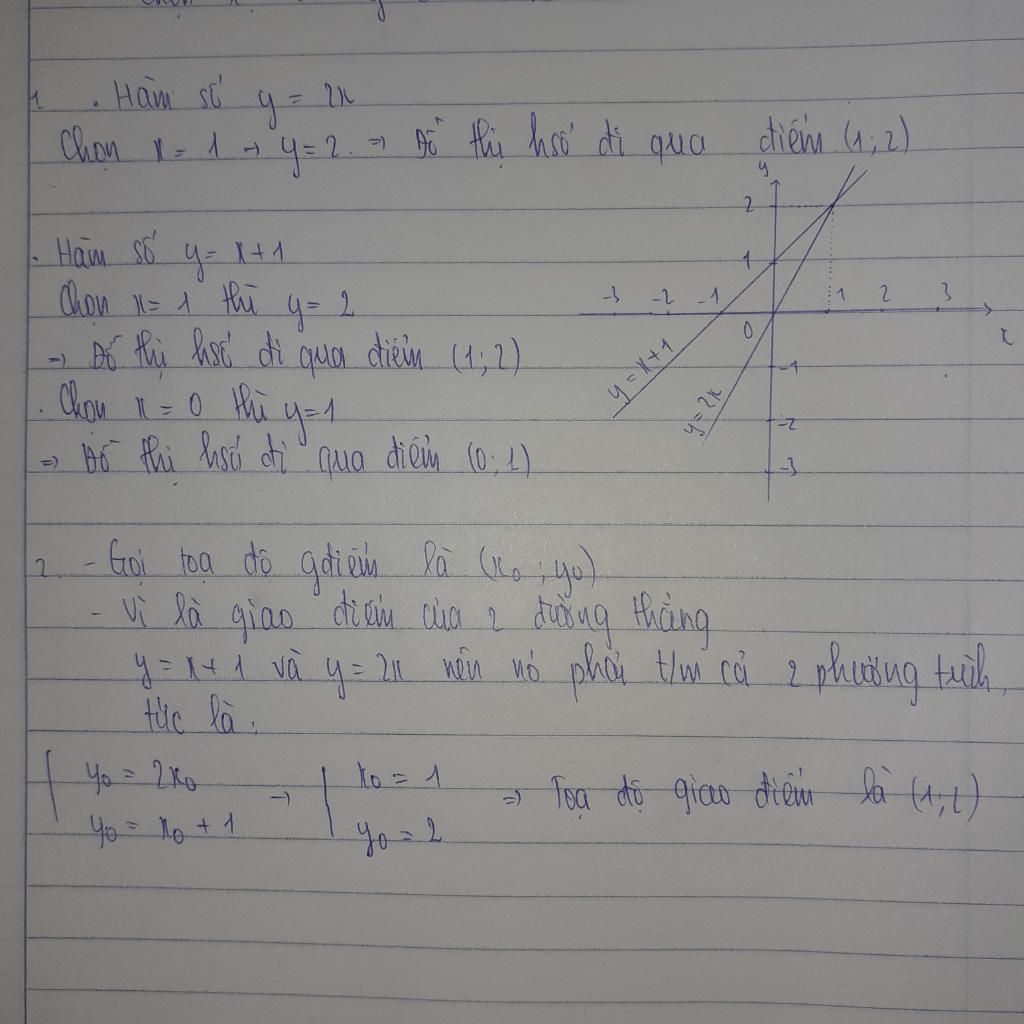 1. . Hàm số y = 2x
Chọn x = 1 → y = 2. ⇒ Đồ thị hsố đi qua điểm (1; 2)
. Hàm số y = x + 1
Chọn x = 1 thì y = 2
⇒ Đồ thị hsố đi qua điểm (1; 2)
. Chọn x = 0 thì y = 1
⇒ Đồ thị hsố đi qua điểm (0; 1)
y
2
1
-3 -2 -1 1 2 3
0
x
-1
-2
-3
y = x + 1
y = 2x
2. - Gọi toạ độ gđiểm là (x₀ ; y₀)
- Vì là giao điểm của 2 đường thẳng
y = x + 1 và y = 2x nên nó phải t/m cả 2 phương trình,
tức là:
y₀ = 2x₀ → x₀ = 1 ⇒ Toạ độ giao điểm là (1; 2)
y₀ = x₀ + 1 y₀ = 2